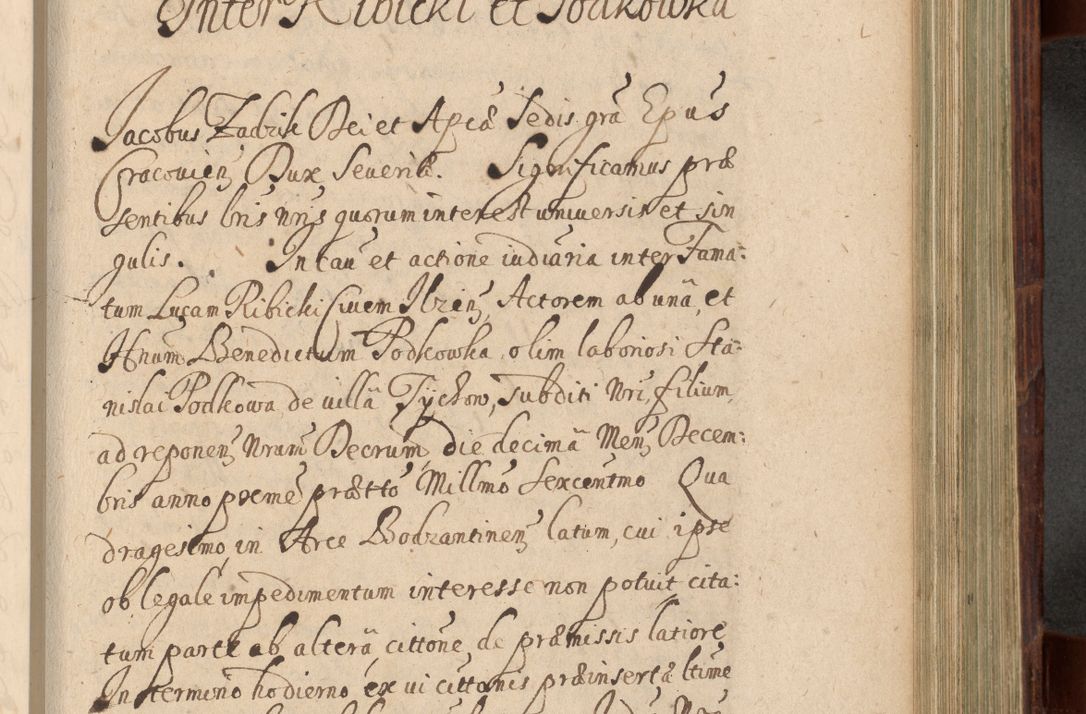 Inter Ribicki et Podkowka
Jacobus Zadzik Dei et Aplicæ Sedis grã Epus
Cracovien Dux Severiæ. Significamus præ
sentibus lris nris quorum interest universis et sin
gulis. In cau et actione iudiaria inter Fama:
tum Lucam Ribicki Civem Ilzien, Actorem ab unã, et
Hnum Benedictum Podkowka, olim laboriosi Sta:
nislai Podkowa, de villã Tychow, subditi Nri, filium,
ad reponen Nrum Decrum, die decimã Mens Decem:
bris anno proxme prætto Millmo Sexcentmo Qua
dragesimo, in Arce Bodzantinen latum, cui ipse
ob legale impedimentum interesse non potuit cita:
tum parte ab alterã, cittõne, de præmissis latiore,
In termino hodierno, ex vi cittonis præinsertæ ltime